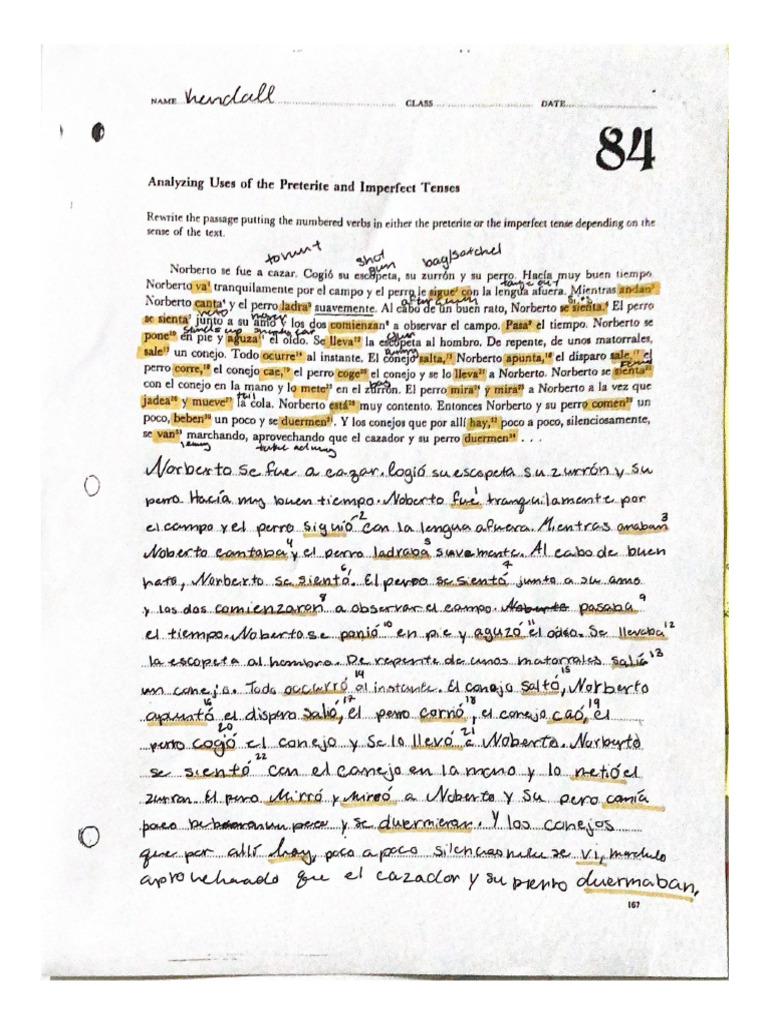 NAME Kendall CLASS DATE
84
Analyzing Uses of the Preterite and Imperfect Tenses
Rewrite the passage putting the numbered verbs in either the preterite or the imperfect tense depending on the
sense of the text.
to hunt shot gun bag/satchel
Norberto se fue a cazar. Cogió su escopeta, su zurrón y su perro. Hacía muy buen tiempo
Norberto va¹ tranquilamente por el campo y el perro le sigue² con la lengua afuera. Mientras andan³
Norberto canta⁴ y el perro ladra⁵ suavemente. Al cabo de un buen rato, Norberto se sienta.⁶ El perro
se sienta⁷ junto a su amo y los dos comienzan⁸ a observar el campo. Pasa⁹ el tiempo. Norberto se
pone¹⁰ en pie y aguza¹¹ el oído. Se lleva¹² la escopeta al hombre. De repente, de unos matorrales,
sale¹³ un conejo. Todo ocurre¹⁴ al instante. El conejo salta,¹⁵ Norberto apunta,¹⁶ el disparo sale,¹⁷ el
perro corre,¹⁸ el conejo cae,¹⁹ el perro coge²⁰ el conejo y se lo lleva²¹ a Norberto. Norberto se sienta²²
con el conejo en la mano y lo mete²³ en el zurrón. El perro mira²⁴ y mira²⁵ a Norberto a la vez que
jadea²⁶ y mueve²⁷ la cola. Norberto está²⁸ muy contento. Entonces Norberto y su perro comen²⁹ un
poco, beben³⁰ un poco y se duermen³¹. Y los conejos que por allí hay,³² poco a poco, silenciosamente,
se van³³ marchando, aprovechando que el cazador y su perro duermen³⁴ . . .
Norberto se fue a cazar. Cogió su escopeta su zurrón y su
perro. Hacía muy buen tiempo. Noberto fue¹ tranquilamente por
el campo y el perro siguió² con la lengua afuera. Mientras anaban³
Noberto cantaba⁴ y el perro ladraba⁵ suavemente. Al cabo de buen
rato, Norberto se sientó⁶. El perro se sientó⁷ junto a su amo
y los dos comienzaron⁸ a observar el campo. pasaba⁹
el tiempo. Noberto se ponió¹⁰ en pie y aguzó¹¹ el oído. Se llevaba¹²
la escopeta al hombre. De repente de unos matorrales salió¹³
un conejo. Todo occurró¹⁴ al instante. El conejo saltó¹⁵, Norberto
apuntó¹⁶ el dispero salió¹⁷, el perro corrió¹⁸, el conejo caó¹⁹, el
perro cogió²⁰ el conejo y se lo llevó²¹ a Noberto. Norberto
se sientó²² con el conejo en la mano y lo metió el
zurron. El perro mirró y miró a Noberto y su pero comía
poco un poco y se duermieron. Y los conejos
que por allí hay, poco a poco se vi,
que el cazador y su perro duermaban.
167